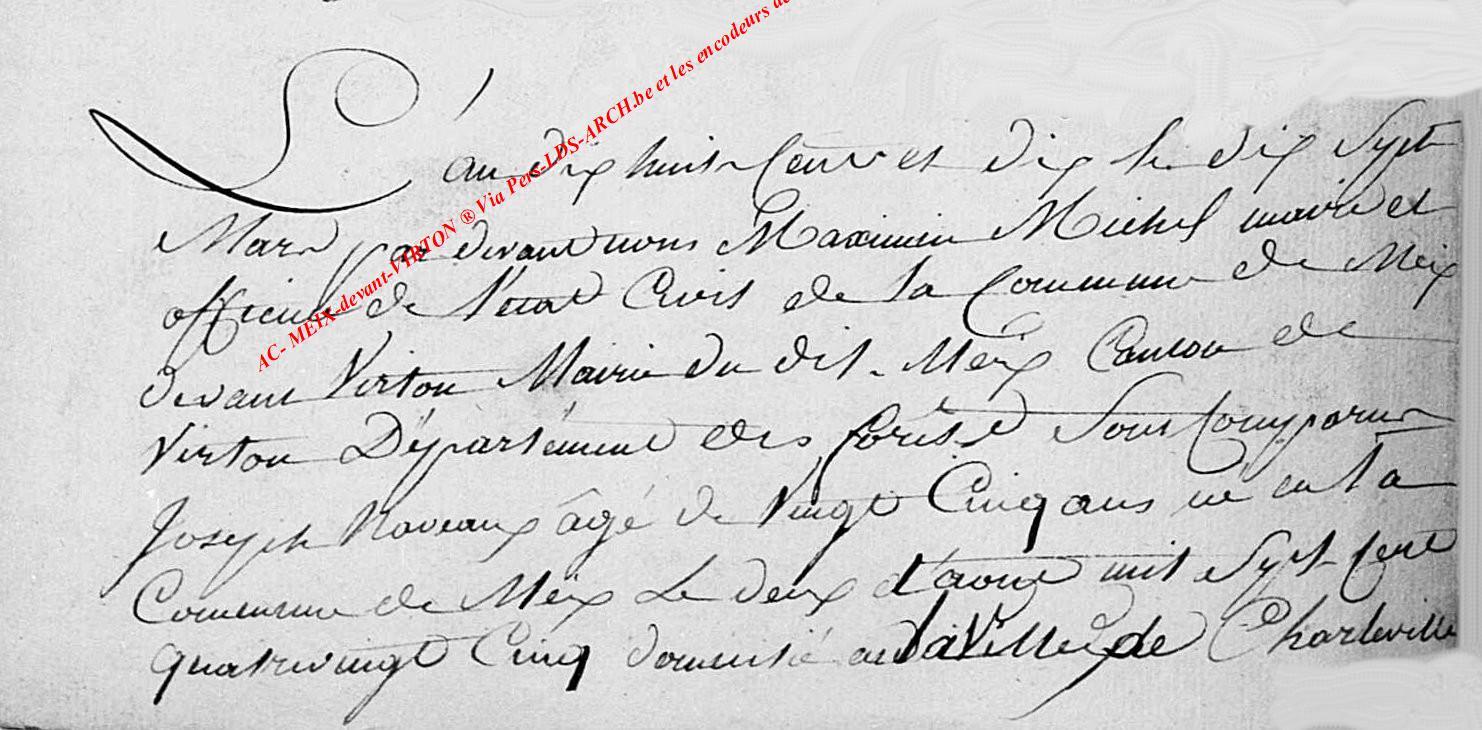 L'an dix huit cent et dix le dix sept
Mars par devant nous Maximin Michel maire et
officier de l'etat Civil de la Commune de Meix
devant Virton Mairie du dit Meix Canton de
Virton Département des forêts Sont Comparus
Joseph Naveaux âgé de Vingt Cinq ans né en la
Commune de Meix Le deux d'aout mil Sept Cent
quatrevingt Cinq domicilié en la Ville de Charleville
AC- MEIX-devant-VIRTON ® Via Pers-LDS-ARCH.be et les encodeurs de